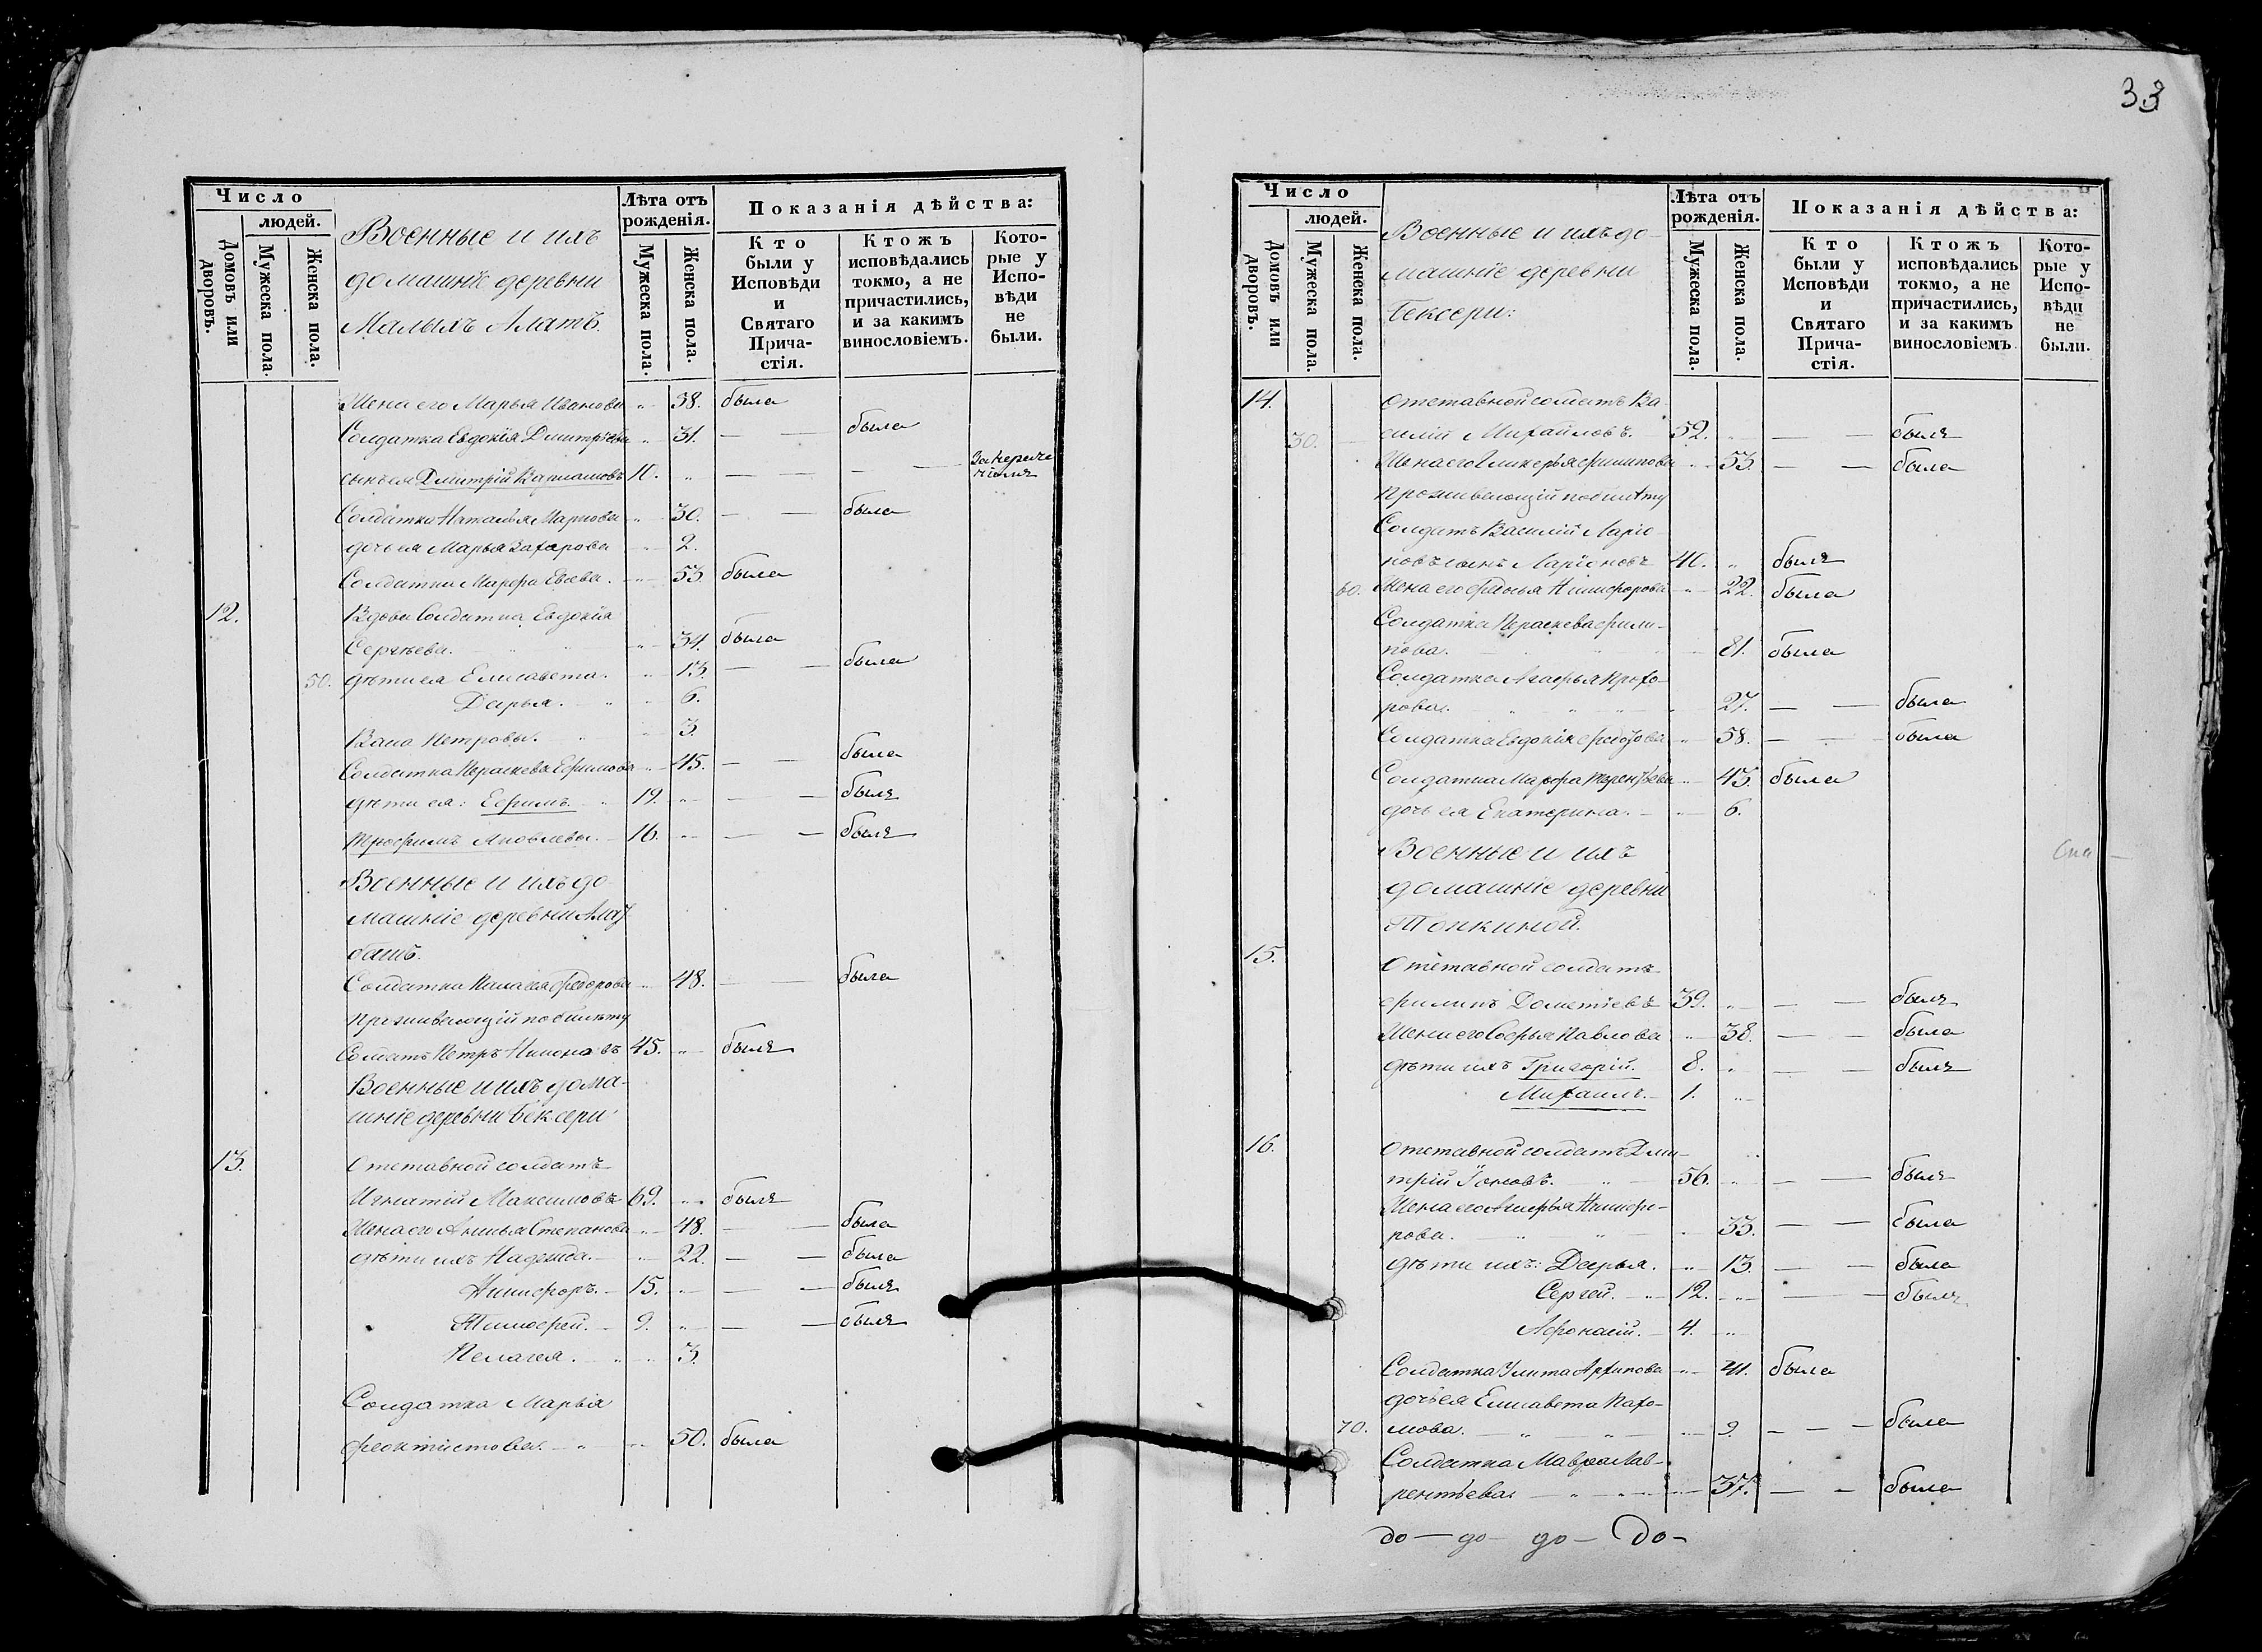 33
Число
людей.
Домовъ или дворовъ.
Мужеска пола.
Женска пола.
Военные и ихъ
домашніе деревни
Малыхъ Алатъ.
Лѣта отъ рожденія.
Мужеска пола.
Женска пола.
Показанія дѣйства:
Кто были у Исповѣди и Святаго Причастія.
Ктожъ исповѣдались токмо, а не причастились, и за какимъ винословіемъ.
Которые у Исповѣди не были.
Жена его Марья Иванова „ 38. была
Солдатка Евдокія Дмитріева „ 31. — — была
сынъ ея Дмитрій 10. „ — — — —
Солдатка Наталья Маркова „ 30. — — была
дочь ея Марья Захарова „ 2.
Солдатка Марфа „ 53. была
12. Вдова Солдатка Евдокія
Сергѣева. „ 34. была
50. дѣти ея Елисавета. „ 13. — — была
Дарья. „ 6.
Петровы. „ 3.
Солдатка Параскева Ефимова „ 45. — — была
дѣти ея: Ефимъ 19. „ — — былъ
Трофимъ Яковлевы. 16. „ — — былъ
Военные и ихъ до
машніе деревни Алат
башъ.
Солдатка Федорова „ 48. — — была
Проживающій по билету
Солдатъ Петръ 45. „ былъ
Военные и ихъ дома-
шніе деревни Бексери
13. Отставной солдатъ
Игнатій Максимовъ 69. „ былъ
Жена его Анисья Степанова „ 48. — — была
дѣти ихъ Надежда. „ 22. — — была
Никифоръ. 15. „ — — былъ
Тимофей. 9. „ — — былъ
Пелагея. „ 3.
Солдатка Марья
Феоктистова. „ 50. была
Число
людей.
Домовъ или дворовъ.
Мужеска пола.
Женска пола.
Военные и ихъ до-
машніе деревни
Бексери:
Лѣта отъ рожденія.
Мужеска пола.
Женска пола.
Показанія дѣйства:
Кто были у Исповѣди и Святаго Причастія.
Ктожъ исповѣдались токмо, а не причастились, и за какимъ винословіемъ.
Которые у Исповѣди не были.
14. Отставной солдатъ Ва-
30. силій Михайловъ. 52. „ — — былъ
Жена его Гликерья Филипова „ 53. — — была
Проживающій по билету
Солдатъ Василій Ларіо-
новъ сынъ Ларіоновъ 40. „ былъ
60. Жена его Никифорова „ 22. была
Солдатка Параскева Фили-
пова. „ 81. была
Солдатка Агафья Прохо-
рова. „ 27. — — была
Солдатка Евдокія Федотова „ 58. — — была
Солдатка Марфа Терентьева „ 43. была
дочь ея Екатерина. „ 6.
Военные и ихъ
домашніе деревни
Топкиной.
15. Отставной солдатъ
Филипъ Дометіевъ 39. „ — — былъ
Жена его Софья Павлова „ 38. — — была
дѣти ихъ Григорій. 8. „ — — былъ
Михаилъ. 1. „
16. Отставной солдатъ Дми-
трій Іоновъ. 56. „ — — былъ
Жена его Никифо-
рова. „ 33. — — была
дѣти ихъ: Дарья. „ 13. — — была
Сергей. 12. „ — — былъ
Афонасій. 4. „
Солдатка Улита Архипова „ 41. была
дочь ея Елисавета Пахо-
70. мова. „ 9. — — была
Солдатка Мавра Лав-
рентьева. „ 37. — — была
до — до — до — до —